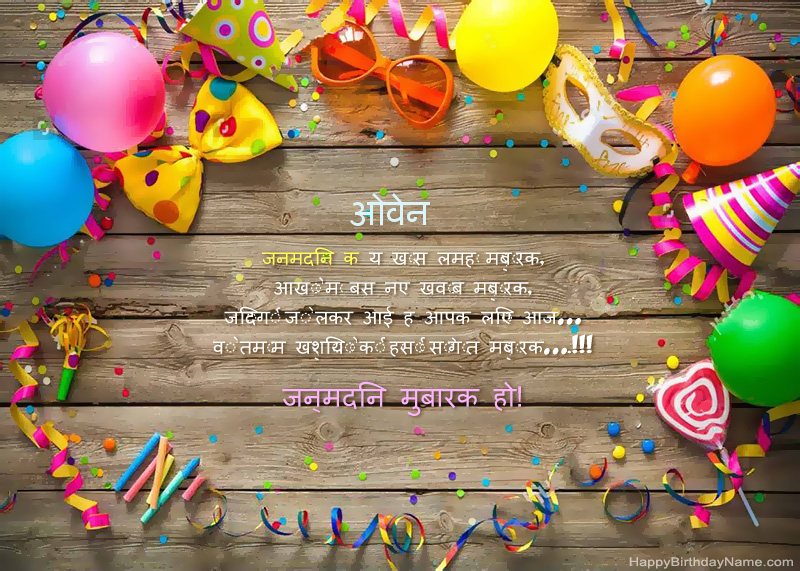 ओवेन
जनमदिन क य खास लमह मबारक,
आखों म बस नए खवाब मबारक,
जिंदगी जो लकर आई ह आपक लिए आज...
वो तमाम खुशियों की हसीं सौगात मबारक...!!!
जन्मदिन मुबारक हो!
HappyBirthdayName.com